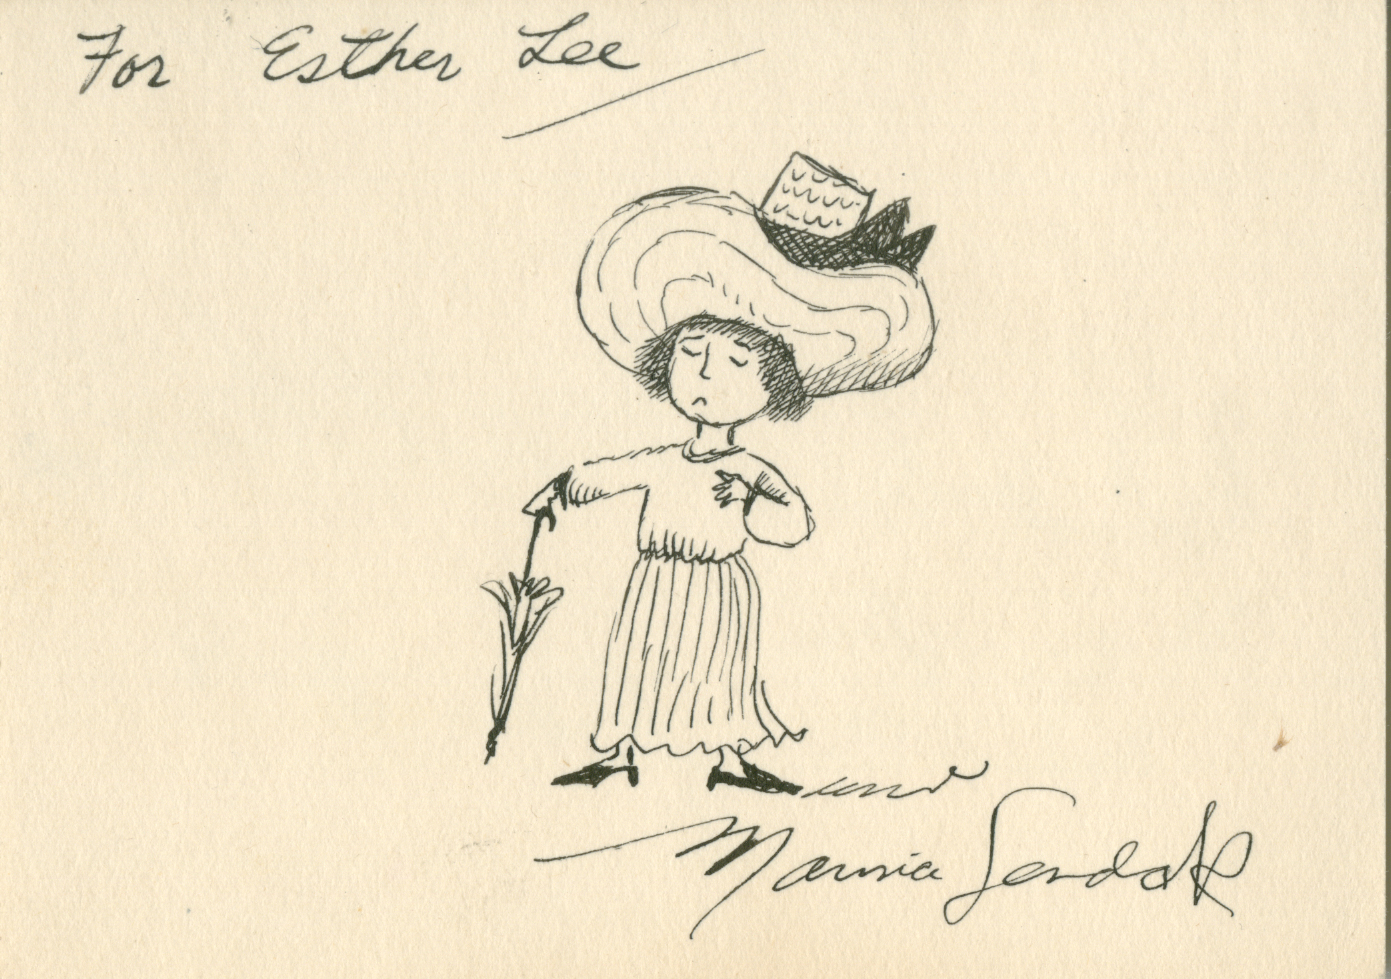 For Esther Lee
Maurice Sendak